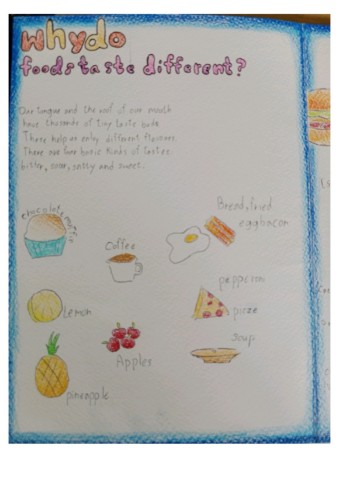 why do
foods taste different?
Our tongue and the roof of our mouth
have thousands of tiny taste buds.
These help us enjoy different flavours.
There are four basic kinds of tastes:
bitter, sour, salty and sweet.
chocolate muffin
Coffee
Bread, fried
egg bacon
Lemon
pepperoni
pizza
Apples
Soup
pineapple